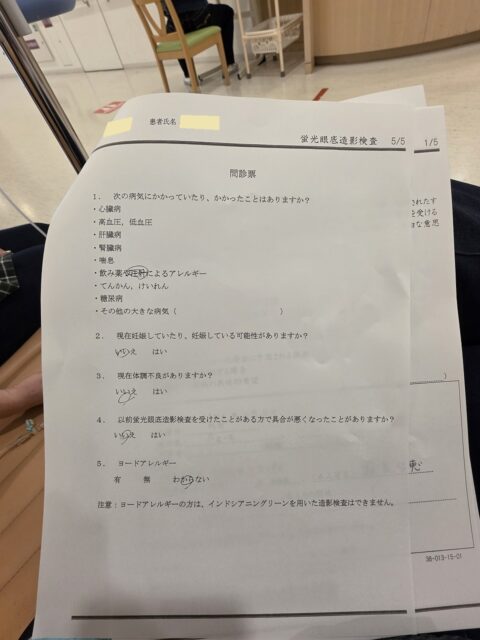 患者氏名
蛍光眼底造影検査 5/5
1/5
問診票
1. 次の病気にかかっていたり、かかったことはありますか?
・心臓病
・高血圧, 低血圧
・肝臓病
・腎臓病
・喘息
・飲み薬や注射によるアレルギー
・てんかん, けいれん
・糖尿病
・その他の大きな病気( )
2. 現在妊娠していたり, 妊娠している可能性がありますか?
いいえ はい
3. 現在体調不良がありますか?
いいえ はい
4. 以前蛍光眼底造影検査を受けたことがある方で具合が悪くなったことがありますか?
いいえ はい
5. ヨードアレルギー
有 無 わからない
注意:ヨードアレルギーの方は、インドシアニングリーンを用いた造影検査はできません。
されたす
を受ける
な意思
)
36-013-15-01